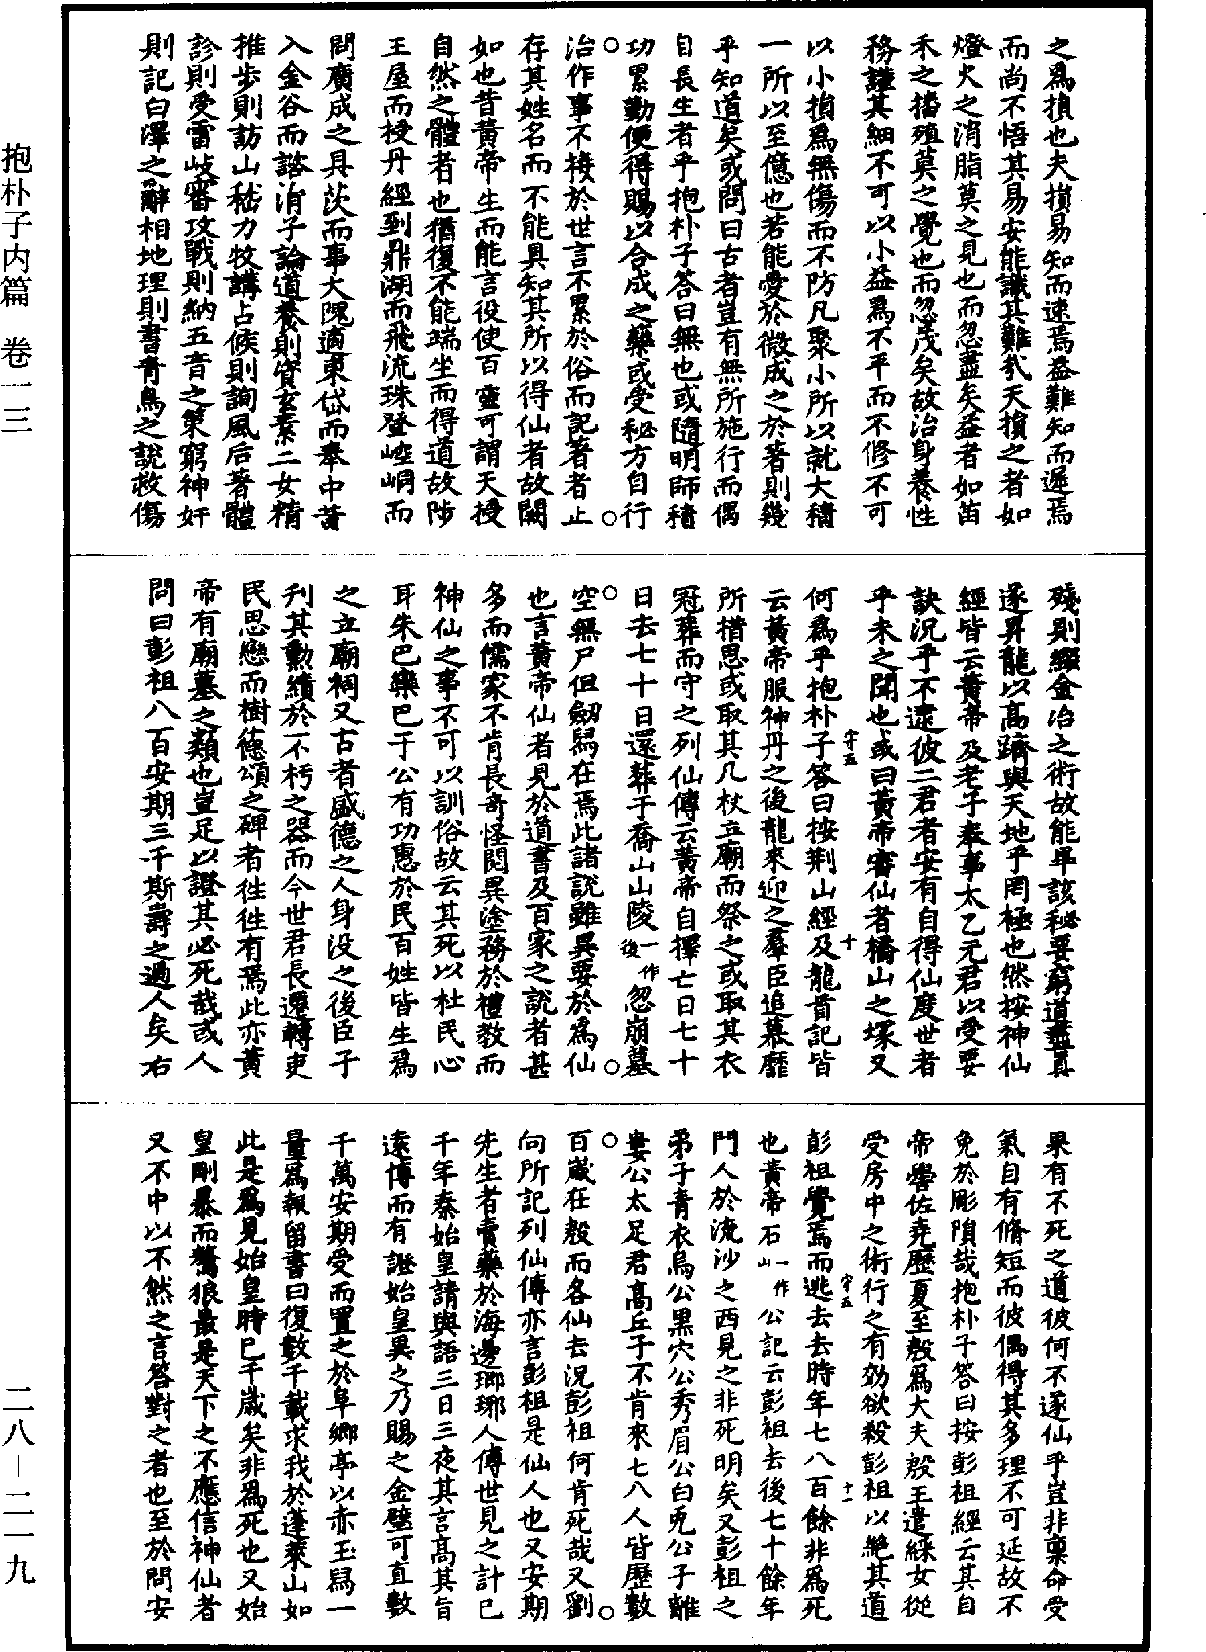 之爲損也夫損易知而速焉益難知而遲焉
而尚不悟其易安能識其難哉夫損之者如
燈火之消脂莫之見也而忽盡矣益者如苗
禾之播殖莫之覺也而忽茂矣故治身養性
務謹其細不可以小益爲不平而不修不可
以小損爲無傷而不防凡聚小所以就大積
一所以至億也若能愛於微成之於著則幾
乎知道矣或問曰古者豈有無所施行而偶
自長生者乎抱朴子答曰無也或隨明師積
功累勤便得賜以合成之藥或受秘方自行
治作事不接於世言不累於俗而記著者止
存其姓名而不能具知其所以得仙者故闕
如也昔黃帝生而能言役使百靈可謂天授
自然之體者也猶復不能端坐而得道故陟
王屋而授丹經到鼎湖而飛流珠登崆峒而
問廣成之具茨而事大隗適東岱而奉中黃
入金谷而諮涓子論道養則資玄素二女精
推步則訪山稽力牧講占候則詢風后著體
診則受雷岐審攻戰則納五音之策窮神奸
則記白澤之辭相地理則書青烏之說救傷
殘則綴金冶之術故能畢該秘要窮道盡真
遂昇龍以高躋與天地乎罔極也然按神仙
經皆云黃帝及老子奉事太乙元君以受要
訣況乎不逮彼二君者安有自得仙度世者
乎未之聞也或曰黃帝審仙者橋山之塚又
何爲乎抱朴子答曰按荆山經及龍首記皆
云黃帝服神丹之後龍來迎之羣臣追慕靡
所措思或取其几杖立廟而祭之或取其衣
冠葬而守之列仙傳云黃帝自擇亡日七十
日去七十日還葬于喬山山陵一作後忽崩墓
空無尸但劒舄在焉此諸說雖異要於爲仙
也言黃帝仙者見於道書及百家之說者甚
多而儒家不肯長奇怪開異塗務於禮教而
神仙之事不可以訓俗故云其死以杜民心
耳朱巴欒巴于公有功惠於民百姓皆生爲
之立廟祠又古者盛德之人身沒之後臣子
刊其勳績於不朽之器而今世君長遷轉吏
民思戀而樹德頌之碑者往往有焉此亦黃
帝有廟墓之類也豈足以證其必死哉或人
問曰彭祖八百安期三千斯壽之過人矣右
果有不死之道彼何不遂仙乎豈非稟命受
氣自有脩短而彼偶得其多理不可延故不
免於彫隕哉抱朴子答曰按彭祖經云其自
帝嚳佐堯歷夏至殷爲大夫殷王遣綵女從
受房中之術行之有効欲殺彭祖以絶其道
彭祖覺焉而逃去去時年七八百餘非爲死
也黃帝石一作山公記云彭祖去後七十餘年
門人於流沙之西見之非死明矣又彭祖之
弟子青衣烏公黑穴公秀眉公白兎公子離
婁公太足君高丘子不肯來七八人皆歷數
百歲在殷而各仙去況彭祖何肯死哉又劉
向所記列仙傳亦言彭祖是仙人也又安期
先生者賣藥於海邊瑯琊人傳世見之計已
千年秦始皇請與語三日三夜其言高其旨
遠博而有證始皇異之乃賜之金璧可直數
千萬安期受而置之於阜鄉亭以赤玉舄一
量爲報留書曰復數千載求我於蓬萊山如
此是爲見始皇時已千歲矣非爲死也又始
皇剛暴而驁狼最是天下之不應信神仙者
又不中以不然之言答對之者也至於問安
守五
十
守五
十一
抱朴子内篇 卷一三
二八—二一九